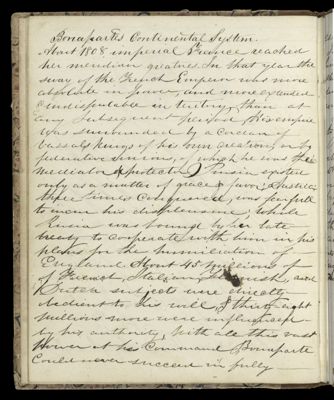 Bonaparte's Continental System.
About 1808 imperial France reached
her meridian greatnes. In that year the
sway of the French Emperor was more
absolute in power, and more extended
& indisputable in teritory, than at
any subsequent period. His empire
was surrounded by a cordon of
vassals kings of his own creation, or by
federative unions, of which he was the
mediator & protector. Prusia existed
only as a matter of grace & favor, Austria
three times Conquered, was fearfull
to incur his displeasure, while
Rusia was bound by her late
treaty to cooperate with him in his
plans for the humiliation of
England. About 45 Millions of
of French, Italian, Flemish, and
Dutch subjects were directly
obedient to His will & thirty eight
millions more were influenced
by his authority, With all this vast
Power at his Command Bonaparte
Could never succeed in fully